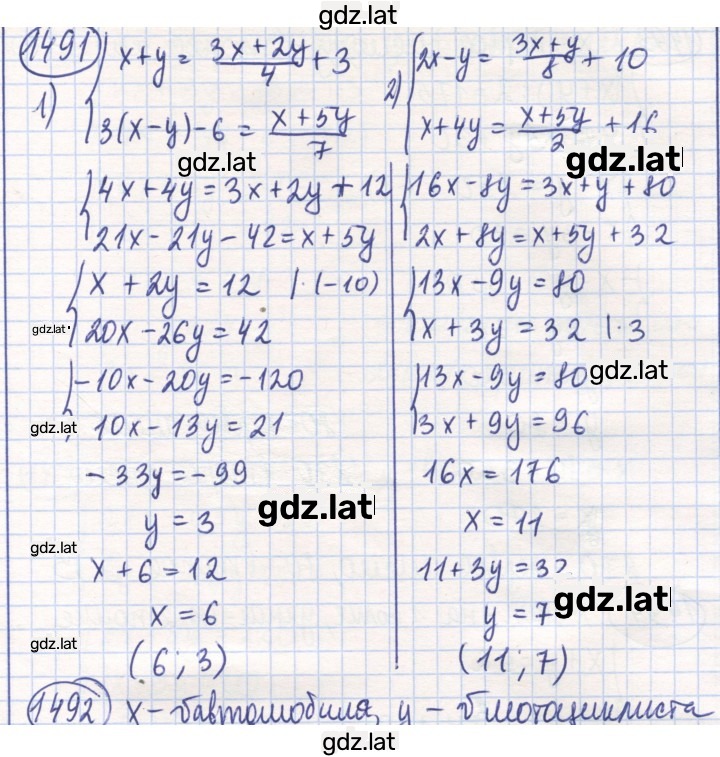 gdz.lat
1491
1) x+y = (3x+2y)/4 + 3
3(x-y)-6 = (x+5y)/7
gdz.lat
4x+4y=3x+2y+12
21x-21y-42=x+5y
x+2y=12 |·(-10)
gdz.lat
20x-26y=42
-10x-20y=-120
gdz.lat
10x-13y=21
-33y=-99
y=3
gdz.lat
gdz.lat
x+6=12
x=6
gdz.lat
(6; 3)
2) 2x-y = (3x+y)/8 + 10
x+4y = (x+5y)/2 + 16
gdz.lat
16x-8y=3x+y+80
2x+8y=x+5y+32
13x-9y=80
x+3y=32 |·3
13x-9y=80
gdz.lat
3x+9y=96
16x=176
x=11
11+3y=32
y=7
gdz.lat
(11; 7)
1492 x - v автомобиля, y - v мотоциклиста
gdz.lat